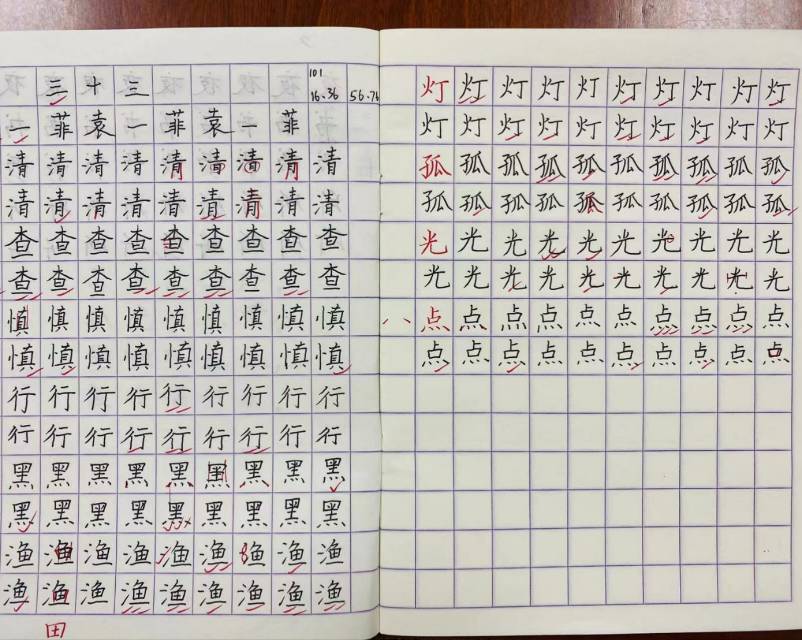 三 十 三 101
16.36 56.76
一 菲 袁 一 菲 袁 一 菲
清 清 清 清 清 清 清 清 清
清 清 清 清 清 清 清 清 清
查 查 查 查 查 查 查 查 查
查 查 查 查 查 查 查 查 查
慎 慎 慎 慎 慎 慎 慎 慎 慎
慎 慎 慎 慎 慎 慎 慎 慎 慎
行 行 行 行 行 行 行 行 行
行 行 行 行 行 行 行 行 行
黑 黑 黑 黑 黑 黑 黑 黑 黑
黑 黑 黑 黑 黑 黑 黑 黑 黑
渔 渔 渔 渔 渔 渔 渔 渔 渔
渔 渔 渔 渔 渔 渔 渔 渔 渔
田
灯 灯 灯 灯 灯 灯 灯 灯 灯 灯
灯 灯 灯 灯 灯 灯 灯 灯 灯 灯
孤 孤 孤 孤 孤 孤 孤 孤 孤 孤
孤 孤 孤 孤 孤 孤 孤 孤 孤 孤
光 光 光 光 光 光 光 光 光 光
光 光 光 光 光 光 光 光 光 光
点 点 点 点 点 点 点 点 点 点
点 点 点 点 点 点 点 点 点 点